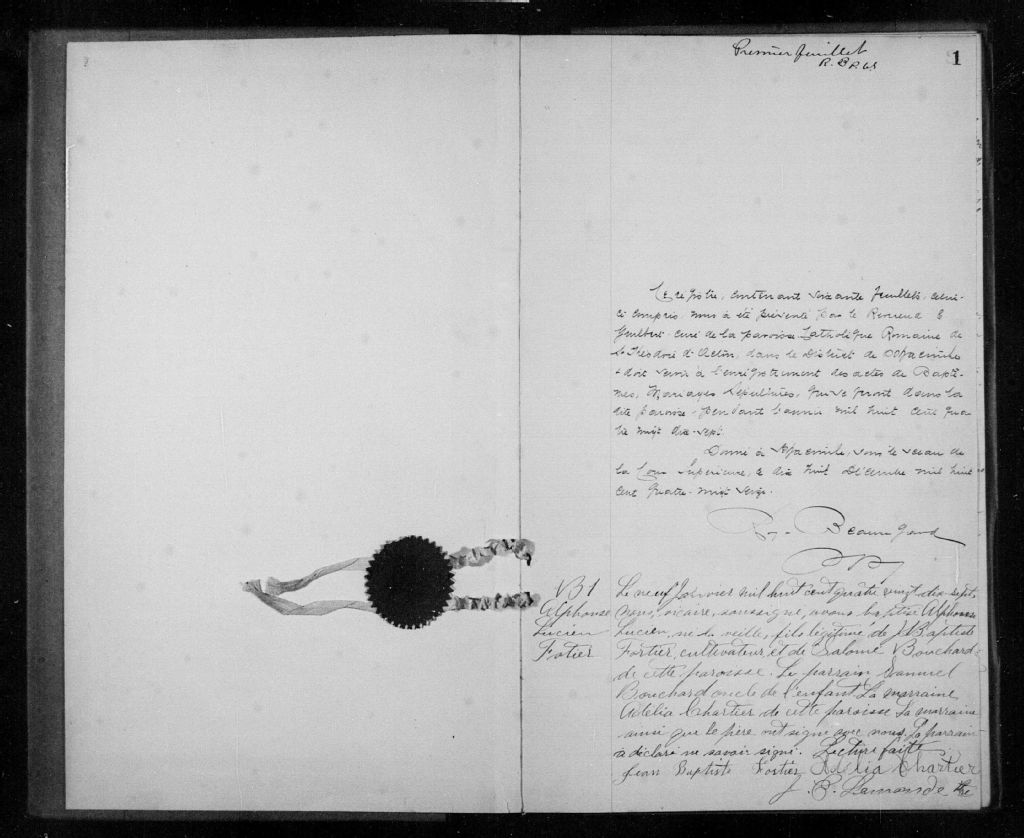 Premier feuillet
R. B P C S
1
Ce registre, contenant soixante feuillets, celui-
ci compris, nous a été présenté par le Révérend E
Guilbert curé de la paroisse Catholique Romaine de
St Théodore d'Acton, dans le District de St Hyacinthe
& doit servir à l'enregistrement des actes de Baptê-
mes, Mariages Sépultures, qui se feront dans la
dite paroisse pendant l'année mil huit cent qua-
tre vingt dix-sept.
Donné à St Hyacinthe, sous le sceau de
la Cour Supérieure, ce dix huit Décembre mil huit
cent quatre-vingt seize.
Beauregard
B 1
Alphonse
Lucien
Fortier
Le neuf Janvier mil huit cent quatre vingt dix-sept,
nous, vicaire, soussigné, avons baptisé Alphonse
Lucien, né la veille, fils légitime de J. Baptiste
Fortier, cultivateur, et de Salomé Bouchard
de cette paroisse. Le parrain Samuel
Bouchard oncle de l'enfant La marraine
Adélia Chartier de cette paroisse La marraine
ainsi que le père ont signé avec nous, le parrain
a déclaré ne savoir signé. Lecture faite
Jean Baptiste Fortier Adélia Chartier